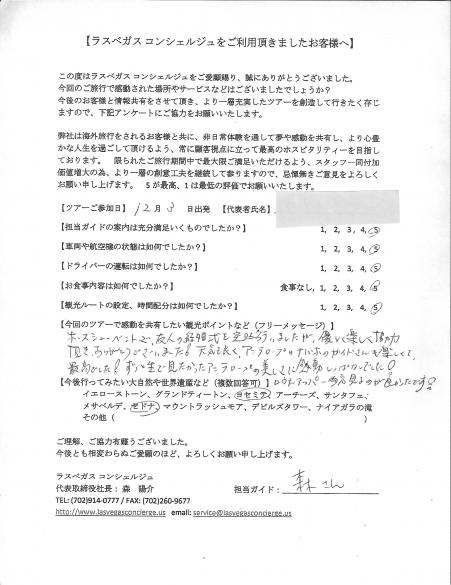 【ラスベガス コンシェルジュをご利用頂きましたお客様へ】
この度はラスベガス コンシェルジュをご愛顧賜り、誠にありがとうございました。
今回のご旅行で感動された場所やサービスなどはございましたでしょうか？
今後のお客様と情報共有をさせて頂き、より一層充実したツアーを創造して行きたく存じ
ますので、下記アンケートにご協力をお願いいたします。
弊社は海外旅行をされるお客様と共に、非日常体験を通して夢や感動を共有し、より心豊
かな人生を過ごして頂けるよう、常に顧客視点に立って最高のホスピタリティーを目指し
ております。 限られたご旅行期間中で最大限ご満足いただけるよう、スタッフ一同付加
価値増大の為、より一層の創意工夫を継続して参りますので、忌憚無きご意見をよろしく
お願い申し上げます。 5が最高、1は最低の評価でお願いいたします。
【ツアーご参加日】 12月 3 日出発 【代表者氏名】
【担当ガイドの案内は充分満足いくものでしたか？】 1, 2, 3, 4, 5
【車両や航空機の状態は如何でしたか？】 1, 2, 3, 4, 5
【ドライバーの運転は如何でしたか？】 1, 2, 3, 4, 5
【お食事内容は如何でしたか？】 食事なし, 1, 2, 3, 4, 5
【観光ルートの設定、時間配分は如何でしたか？】 1, 2, 3, 4, 5
【今回のツアーで感動を共有したい観光ポイントなど（フリーメッセージ）】
ホースシューベントで、友人の結婚式を
頂き、ありがとうございました！天気も良く、アンテロープのナバホのガイドさんも楽しくて、
最高でした！ずっと生で見たかったアンテロープの美しさに感動しっぱなしでした！
【今後行ってみたい大自然や世界遺産など（複数回答可）】
イエローストーン、グランドティートン、ヨセミテ、アーチーズ、サンタフェ、
メサベルデ、セドナ、マウントラッシュモア、デビルズタワー、ナイアガラの滝
その他（ ）
ご理解、ご協力有難うございました。
今後とも相変わらぬご愛顧のほど、よろしくお願い申し上げます。
ラスベガス コンシェルジュ
代表取締役社長： 森 陽介 担当ガイド： 森さん
TEL: (702)914-0777 / FAX: (702)260-9677
http://www.lasvegasconcierge.us email: service@lasvegasconcierge.us